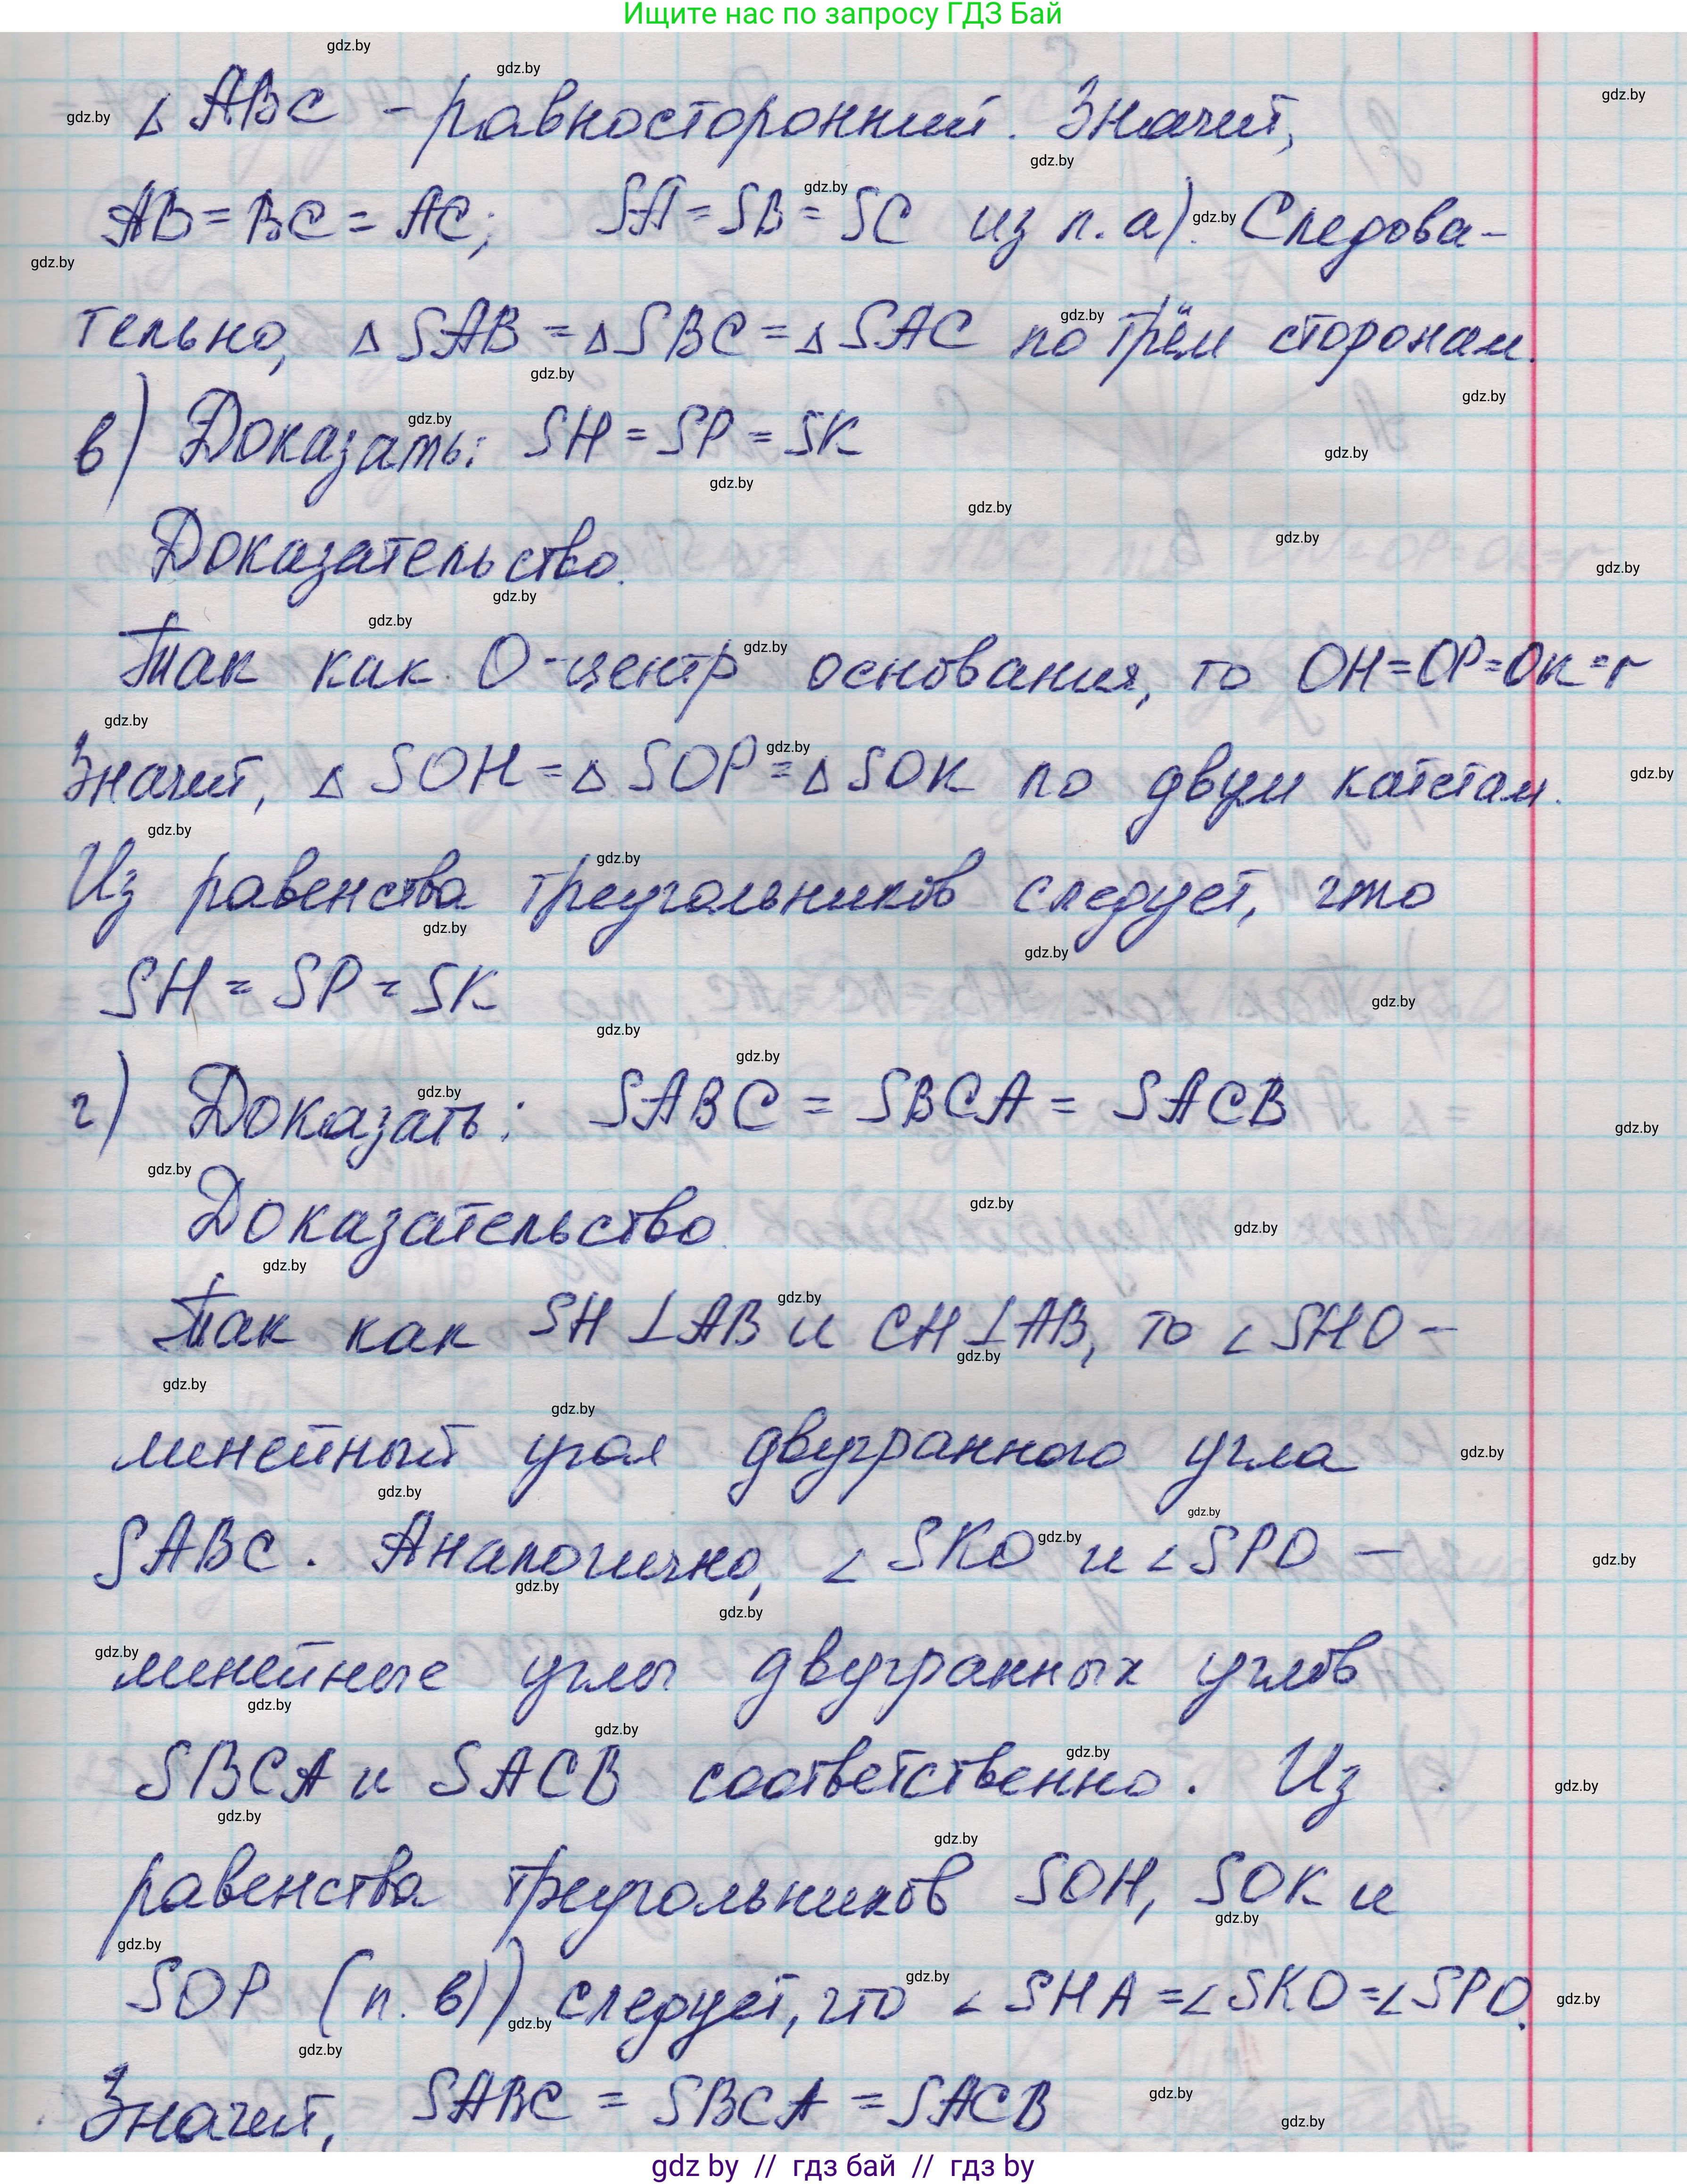 Ищите нас по запросу ГДЗ Бай
△ABC - равносторонний. Значит,
AB = BC = AC; SA = SB = SC из п. а). Следова-
тельно, △SAB = △SBC = △SAC по трём сторонам.
в) Доказать: SH = SP = SK
Доказательство.
Так как O - центр основания, то OH = OP = OK = r
Значит, △SOH = △SOP = △SOK по двум катетам.
Из равенства треугольников следует, что
SH = SP = SK
г) Доказать: SABC = SBCA = SACB
Доказательство.
Так как SH ⊥ AB и CH ⊥ AB, то ∠SHO -
линейный угол двугранного угла
SABC. Аналогично, ∠SKO и ∠SPO -
линейные углы двугранных углов
SBCA и SACB соответственно. Из
равенства треугольников SOH, SOK и
SOP (п. в)) следует, что ∠SHA = ∠SKO = ∠SPO.
Значит, SABC = SBCA = SACB
gdz by // гдз бай // гдз by